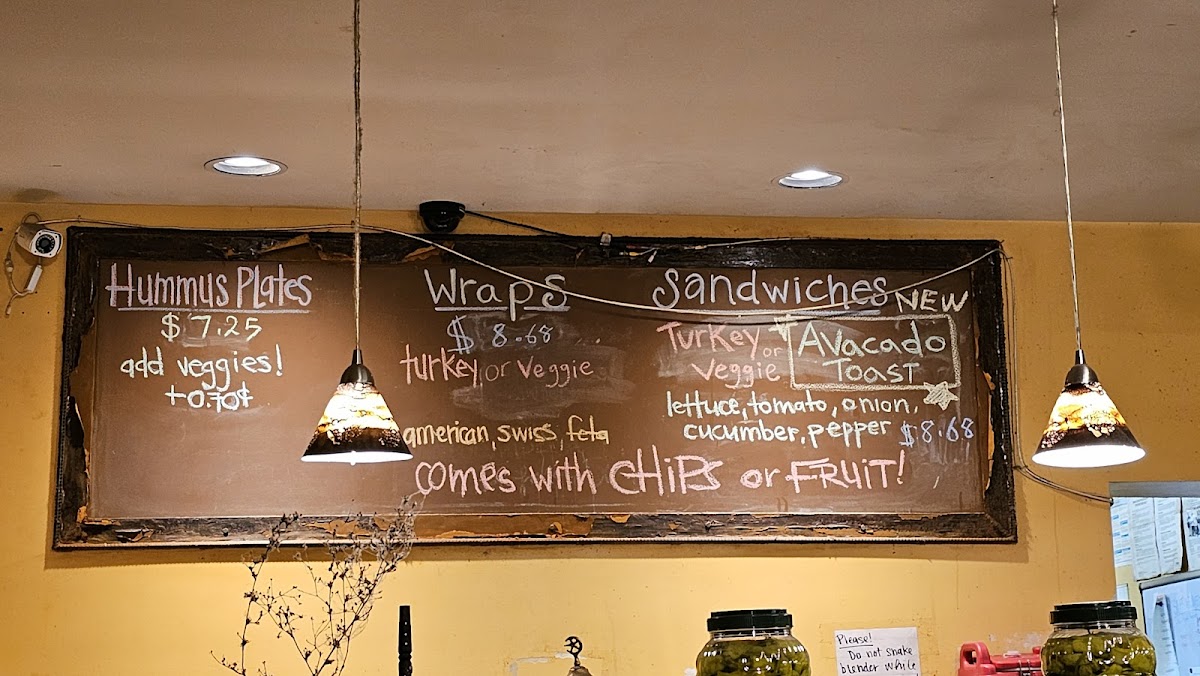 Hummus Plates
$7.25
add veggies!
+0.70¢
Wraps
$8.68
turkey or veggie
american, swiss, feta
Sandwiches
Turkey or
veggie
NEW
AVacado
Toast
lettuce, tomato, onion,
cucumber, pepper $8.68
comes with CHIPS or FRUIT!
Please!
Do not shake
blender while